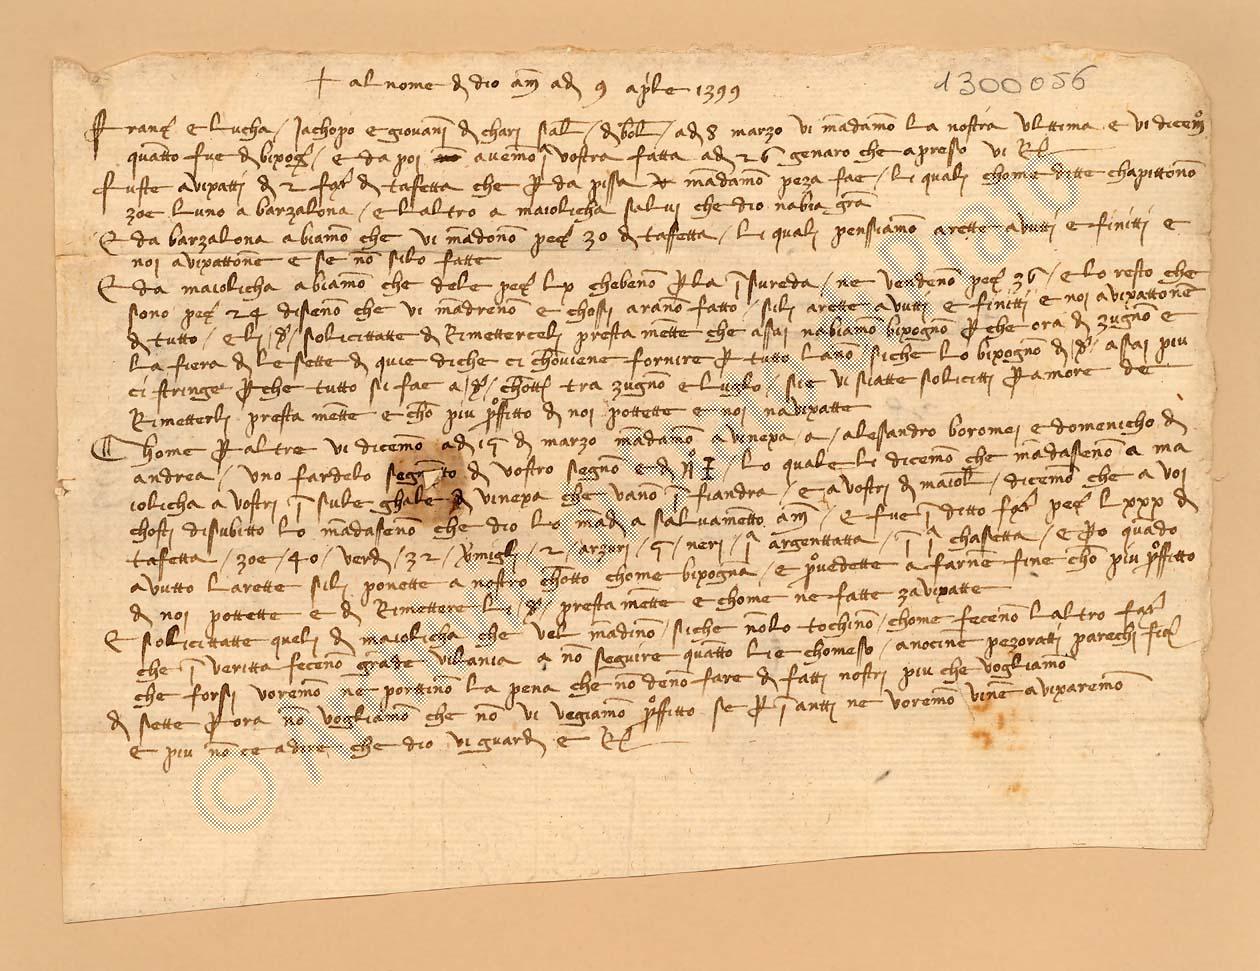 + al nome d dio am ad 9 aprle 1399
1300056
Franc e lucha / Jachopo e giovani d chari sal / d bol / ad 8 marzo vi madamo la nostra ulttima e vi dicemo
quatto fue d bixogn / e da poi avemo 1 vostra fatta ad 26 genaro che apresso vi R
fuste avixatti d 2 d tafetta che p da pissa madamo peza fae / li quali chome ditte chapittono
zoe luno a barzalona / e laltro a maiolicha salvi che dio nabia gra
E da barzalona abiamo che vi madono pez 30 d tafetta / li quali penssiamo arette avutti e finitti e
noi avixattone e se no silo fatte
E da maiolicha abiamo che dele pez che beno p la isureda / ne vendeno pez 36 / e lo resto che
sono pez 24 diseno che vi madreno e chossi arano fatto / sili arette avutti e finitti e noi avixattone
d tutto / e li d / solicittate d Rimetterceli presta mette che assai nabiamo bixogno p che ora d zugno e
la fiera d le sette d quie diche ci choviene fornire p tutto lano siche lo bixogno d d / assai piu
ci stringe p che tutto si fae a d / chotti tra zugno e luglo / sie vi siatte solicitti p amore de
Rimetterli presta mette e cho piu proffitto d noi pottette e noi navixatte
Chome p altre vi dicemo ad 15 d marzo madamo a vinexa a / alesandro boromei e domenicho d
andrea / uno fardelo segnato d vostro segno e d no I / lo quale li dicemo che madaseno a ma
iolicha a vostri i sule ghale d vinexa che vano i fiandra / e a vostri d maiol / dicemo che a voi
chosti disubitto lo madaseno che dio lo mad a salvametto am / e fue i ditto pez lxxx d
tafetta / zoe / 40 / verd / 32 / vrmigli / 2 / arzuri / 5 / neri / 1 argenttatta / i 1 chassetta / e pro quado
avutto larette sili ponette a nostro chotto chome bixogna / e provedette a farne fine cho piu proffitto
d noi pottette e d Rimettere li d / presta mette e chome ne fatte zavixatte
E solicittatte queli d maiolicha che vel madino / siche nolo tochino / chome feceno laltro
che i veritta feceno grade vilania a no seguire quatto lie chomesso / anocine pezoratti parechi fior
che forssi voremo ne porttino la pena che no deno fare d fatti nostri piu che vogliamo
d sette p ora no vogliamo che no vi vegiamo proffitto se p inantti ne voremo vine avixaremo
E piu no ce a dire / che dio vi guard e R